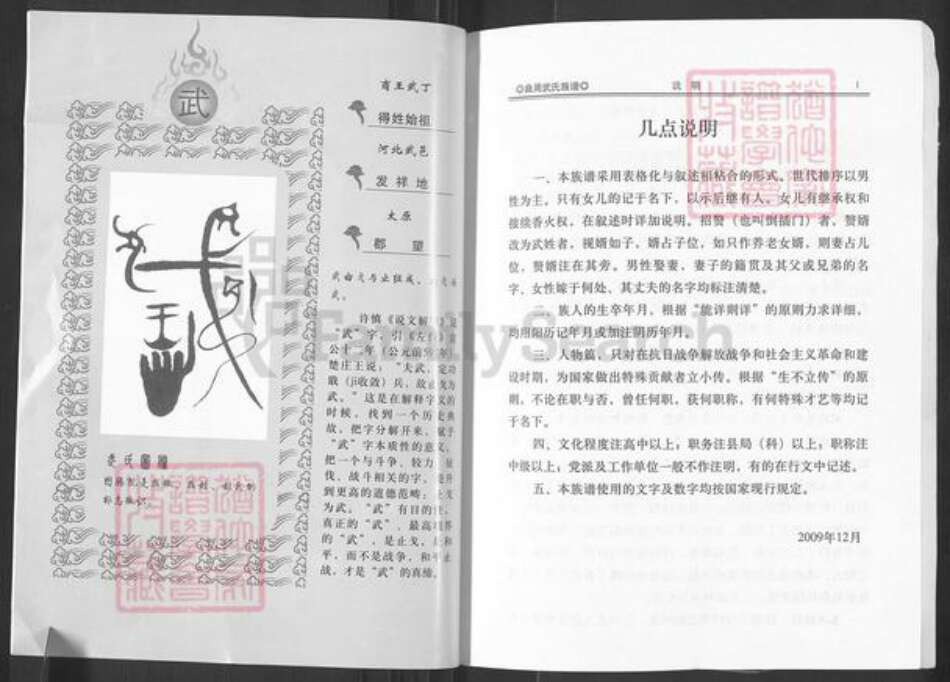 武
商王武丁
得姓始祖
河北武邑
发祥地
太原
郡望
武
许慎《说文解
“武”字，引《左
公十二年（公元前
楚庄王说：“夫武，定功
戢（ji收敛）兵，故止戈为
武。”这是在解释字义的
时候，找到一个历史典
故，把字分解开来，赋予
“武”字本质性的意义，
把一个与斗争、较力、
伐、战斗相关的字，提升
到更高的道德范畴：止戈
为武。“武”有目的性，
真正的“武”，最高境界
的“武”，是止戈，是和
平，而不是战争，和平止
战，才是“武”的真缔。
武氏图腾
FamilySearch
○曲周武氏族谱○ 说明 1
几点说明
一、本族谱采用表格化与叙述相粘合的形式。世代排序以男
性为主，只有女儿的记于名下，以示后继有人。女儿有继承权和
接续香火权，在叙述时详加说明。招赘（也叫倒插门）者，赘婿
改为武姓者，视婿如子，婿占子位，如只作养老女婿，则妻占儿
位，赘婿注在其旁。男性娶妻、妻子的籍贯及其父或兄弟的名
字、女性嫁于何处、其丈夫的名字均标注清楚。
二、族人的生卒年月，根据“能详则详”的原则力求详细，
均用阳历记年月或加注阴历年月。
三、人物篇，只对在抗日战争解放战争和社会主义革命和建
设时期，为国家做出特殊贡献者立小传。根据“生不立传”的原
则，不论在职与否，曾任何职，获何职称，有何特殊才艺等均记
于名下。
四、文化程度注高中以上；职务注县局（科）以上；职称注
中级以上；党派及工作单位一般不作注明，有的在行文中记述。
五、本族谱使用的文字及数字均按国家现行规定。
2009年12月